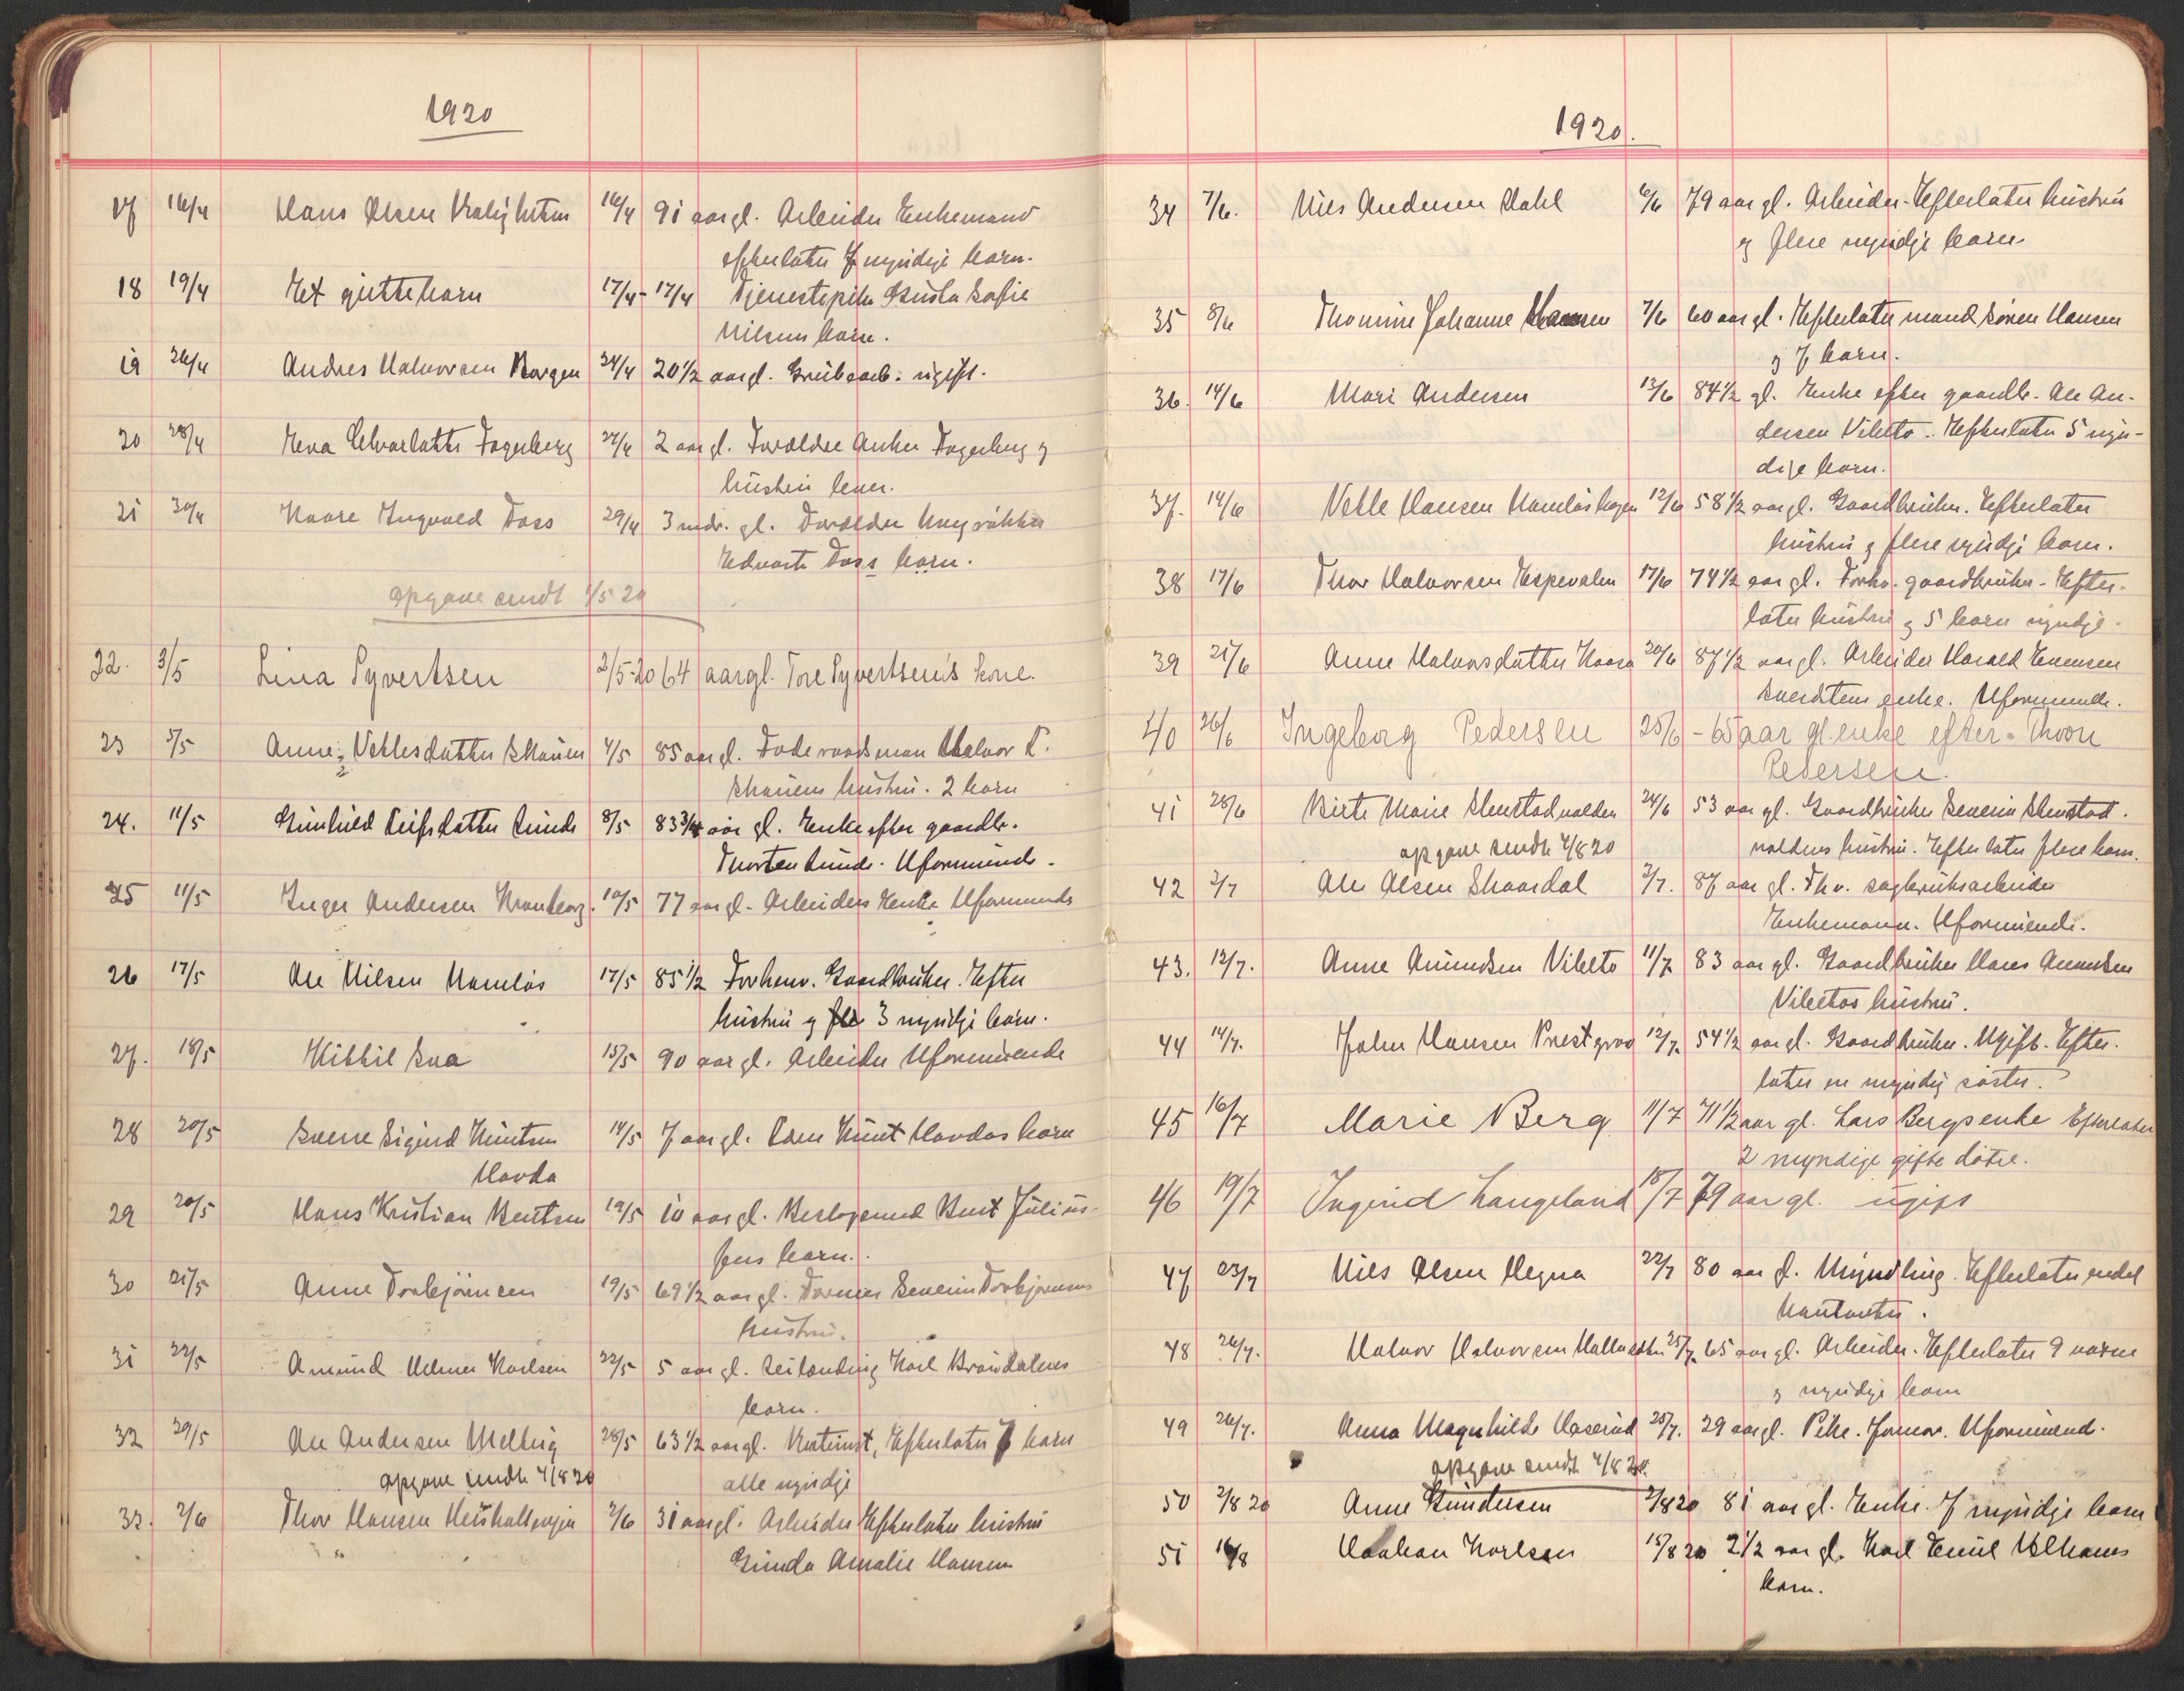 1920
17 16/4 Hans Olsen 16/4 91 aar gl. Arbeider Enkemand
efterlater 7 myndige barn.
18 19/4 Et guttebarn 17/4 - 17/4 Tjenestepike Gusta Sofie
Nilsens barn.
19 26/4 Andres Halvorsen Borgen 24/4 20 1/2 aar gl. Grubearb. ugift.
20 28/4 Eva Charlotte Fagerberg 27/4 2 aar gl. Forældre Anker Fagerberg og
hustru lever.
21 30/4 Kaare Ingvald Foss 29/4 3 mdr. gl. Forældre Ungvökter
Edvart Foss barn.
opgave sendt 1/5 20
22. 3/5 Lina Syvertsen 2/5-20 64 aargl. Tore Syvertsen's kone.
23 5/5 Anne Vetlesdatter Skauen 4/5 85 aar gl. Föderaadsman Halvor T.
Skauens hustru. 2 barn
24. 11/5 Gunhild Leifsdatter Lunde 8/5 83 3/4 aar gl. Enke efter gaardbr.
Thorsten Lunde. Uformuende.
25 11/5 Inger Andersen Kronborg. 10/5 77 aar gl. Arbeiders Enke Uformuende
26 17/5 Ole Nilsen Namlös 17/5 85 1/2 Forhenv. Gaardbruker. Efter
hustru og 3 myndige barn.
27. 18/5 Kittil Sva 15/5 90 aar gl. Arbeider Uformuende
28 20/5 Sverre Sigurd Knutsen 14/5 7 aar gl. Knut Havdas barn
Havda
29 20/5 Hans Kristian Bentsen 19/5 10 aar gl. Bent Julius-
sens barn.
30 21/5 Anne Torbjörnsen 19/5 69 1/2 aar gl. Former Severin Torbjörnsens
hustru.
31 22/5 Amund Karlsen 22/5 5 aar gl. Karl Braudalens
barn.
32 29/5 Ole Andersen Melteig 28/5 63 1/2 aar gl. Efterlater 7 barn
opgave sendt 4/8 20 alle myndige
33. 2/6 Thor Hansen 2/6 31 aargl. Arbeider Efterlater hustru
Gunda Amalie Hansen
1920.
34 7/6. Nils Andersen Dahl 6/6 79 aar gl. Arbeider. Efterlater hustru
og flere myndige barn.
35 8/6 Thomine Johanne Hansen 7/6 60 aar gl. Efterlater mand Sören Hansen
og 7 barn.
36. 14/6 Mari Andersen 13/6 84 1/2 gl. Enke efter gaardbr. Ole An-
dersen Vibeto. Efterlater 5 myn-
dige barn.
37. 14/6 Vetle Hansen Namlöshagen 12/6 58 1/2 aar gl. Gaardbruker. Efterlater
hustru og flere myndige barn.
38 17/6 Thor Halvorsen Espevalen 17/6 74 1/2 aar gl. Forhv. gaardbruker. Efter-
later hustru og 5 barn myndge.
39 21/6 Anne Halvorsdatter Kaasa 20/6 87 1/2 aar gl. Arbeider Harald Evensen
enke. Uformuende.
40 26/6 Ingeborg Pedersen 25/6 - 65 aar gl. enke efter. Thom
Pedersen.
41 28/6 Birte Marie Stenstadvalden 24/6 53 aar gl. Gaardbruker Severin Stenstad-
opgave sendt 4/8 20 valdens hustru. Efterlater flere barn.
42 3/7 Ole Olsen Skaardal 2/7. 87 aar gl. Fhv. sagbruksarbeider
Enkemann. Uformuende.
43. 12/7. Anne Amundsen Vibeto 11/7 83 aar gl. Gaardbruker Hans Amundsen
Vibetos hustru.
44 14/7. John Hansen Prestgrav 12/7. 54 1/2 aar gl. Gaardbruker. Ugift. Efter-
later en myndig söster.
45 16/7 Marie Berg 11/7 71 1/2 aar gl. Lars Bergs enke Efterlater
2 myndige gifte døtre.
46 19/7 Ingerid Langeland 18/7 79 aar gl. ugift
47 23/7 Nils Olsen Megna 22/7 80 aar gl. Myndling. Efterlater endel
kontanter.
48 26/7. Halvor Halvorsen 25/7. 65 aar gl. Arbeider. Efterlater 9 voxne
og myndige barn
49 26/7. Anna Magnhilde Haserud 25/7. 29 aar gl. Pike. Uformuend.
opgave sendt 4/8 20.
50 2/8 20 Anne Gundersen 2/8 20 81 aar gl. Enke. 7 myndige barn
51 16/8 Haakan Karlsen 15/8 20 2 1/2 aar gl. Karl Emil
barn.